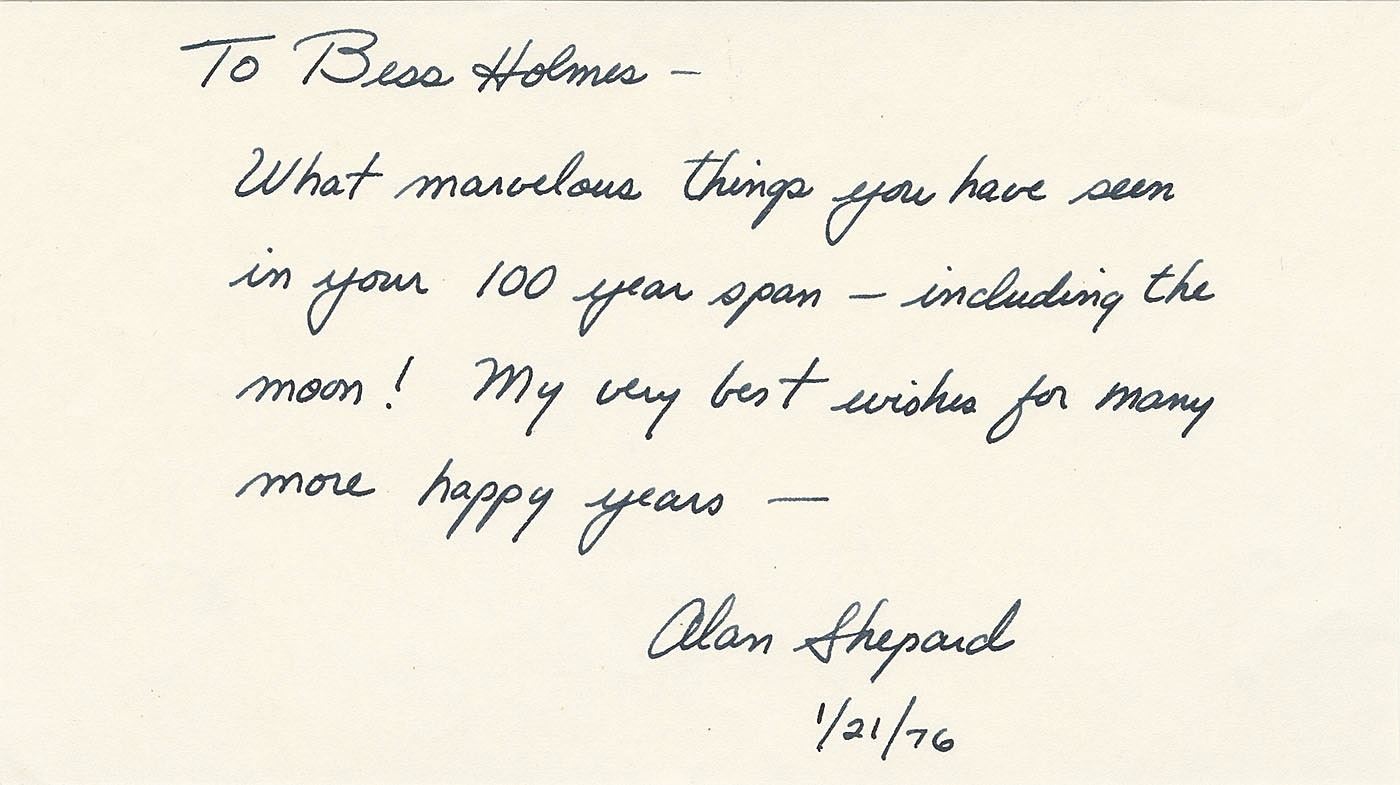 To Bess Holmes –
What marvelous things you have seen
in your 100 year span – including the
moon! My very best wishes for many
more happy years —
Alan Shepard
1/21/76